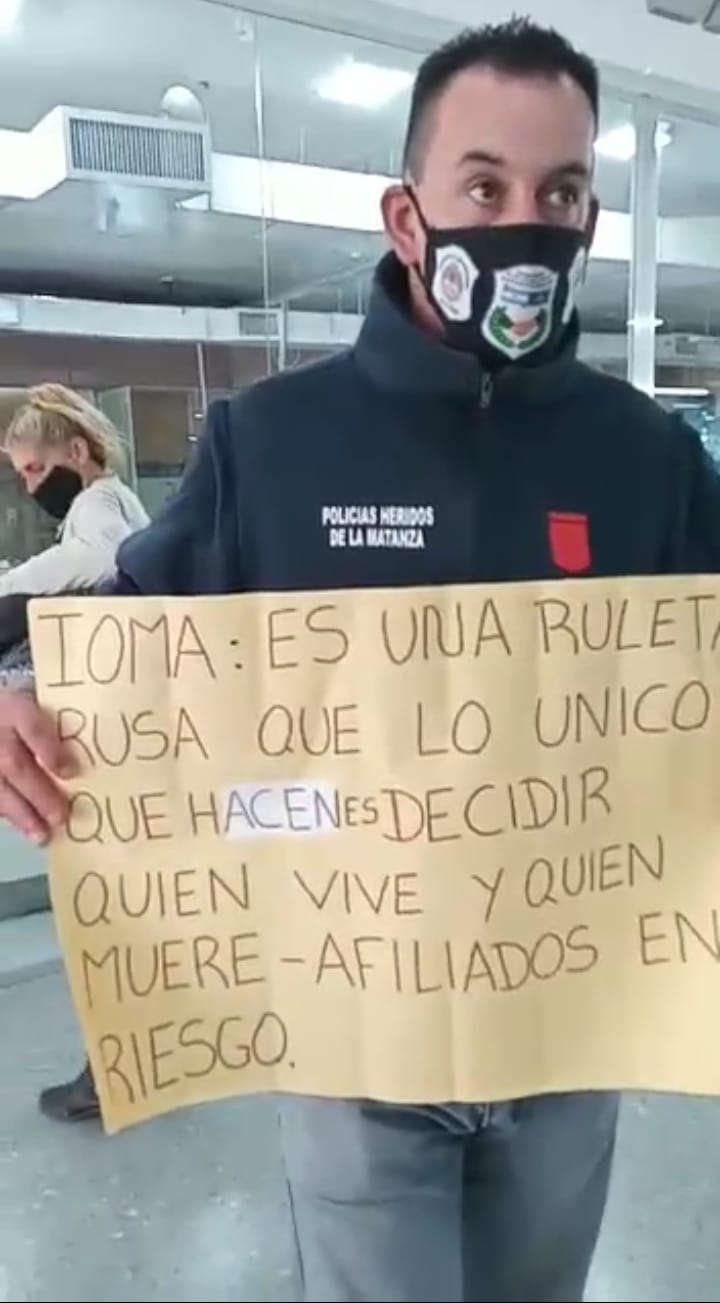 POLICIAS HERIDOS
DE LA MATANZA
IOMA: ES UNA RULETA
RUSA QUE LO UNICO
QUE HACEN ES DECIDIR
QUIEN VIVE Y QUIEN
MUERE - AFILIADOS EN
RIESGO.